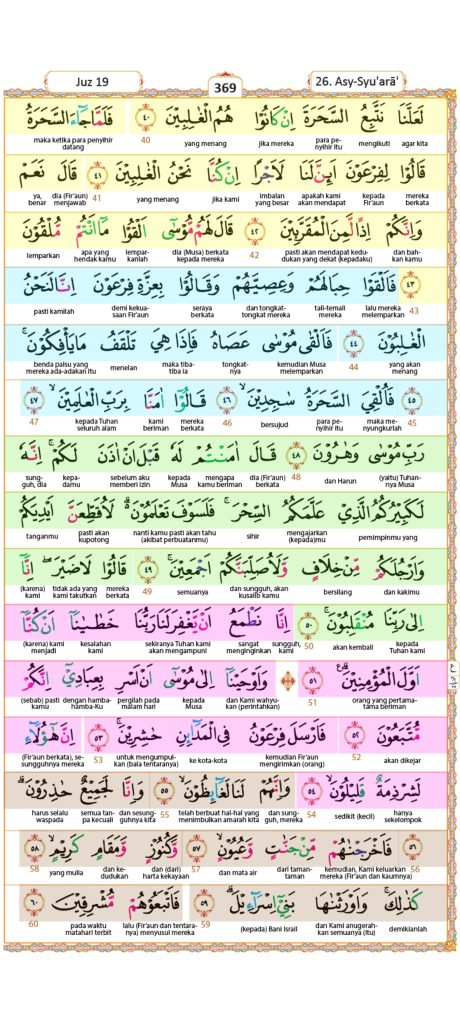 Juz 19
369
26. Asy-Syu'arā'
لَعَلَّنَا نَتَّبِعُ السَّحَرَةَ اِنْ كَانُوْا هُمُ الْغٰلِبِيْنَ ٤٠ فَلَمَّا جَاۤءَ السَّحَرَةُ
agar kita mengikuti para penyihir itu jika mereka yang menang 40 maka ketika para penyihir datang
قَالُوْا لِفِرْعَوْنَ اَىِٕنَّ لَنَا لَاَجْرًا اِنْ كُنَّا نَحْنُ الْغٰلِبِيْنَ ٤١ قَالَ نَعَمْ
mereka berkata kepada Fir'aun apakah kami akan mendapat imbalan yang besar jika kami yang menang 41 dia (Fir'aun) menjawab ya, benar
وَاِنَّكُمْ اِذًا لَّمِنَ الْمُقَرَّبِيْنَ ٤٢ قَالَ لَهُمْ مُّوْسٰٓى اَلْقُوْا مَآ اَنْتُمْ مُّلْقُوْنَ
dan bahkan kamu pasti akan mendapat kedudukan yang dekat (kepadaku) 42 dia (Musa) berkata kepada mereka lemparkanlah apa yang hendak kamu lemparkan
٤٣ فَاَلْقَوْا حِبَالَهُمْ وَعِصِيَّهُمْ وَقَالُوْا بِعِزَّةِ فِرْعَوْنَ اِنَّا لَنَحْنُ
43 lalu mereka melemparkan tali-temali mereka dan tongkat-tongkat mereka seraya berkata demi kekuasaan Fir'aun pasti kamilah
الْغٰلِبُوْنَ ٤٤ فَاَلْقٰى مُوْسٰى عَصَاهُ فَاِذَا هِيَ تَلْقَفُ مَا يَأْفِكُوْنَ ۚ
yang akan menang 44 kemudian Musa melemparkan tongkatnya maka tiba-tiba ia menelan benda palsu yang mereka ada-adakan itu
٤٥ فَاُلْقِيَ السَّحَرَةُ سٰجِدِيْنَ ۙ ٤٦ قَالُوْٓا اٰمَنَّا بِرَبِّ الْعٰلَمِيْنَ ۙ ٤٧
45 maka menyungkurlah para penyihir itu bersujud 46 mereka berkata kami beriman kepada Tuhan seluruh alam 47
رَبِّ مُوْسٰى وَهٰرُوْنَ ٤٨ قَالَ اٰمَنْتُمْ لَهٗ قَبْلَ اَنْ اٰذَنَ لَكُمْ ۚ اِنَّهٗ
(yaitu) Tuhannya Musa dan Harun 48 dia (Fir'aun) berkata mengapa kamu beriman kepada Musa sebelum aku memberi izin kepadamu sungguh, dia
لَكَبِيْرُكُمُ الَّذِيْ عَلَّمَكُمُ السِّحْرَ ۚ فَلَسَوْفَ تَعْلَمُوْنَ ۗ لَاُقَطِّعَنَّ اَيْدِيَكُمْ
pemimpinmu yang mengajarkan (kepada)mu sihir nanti kamu pasti akan tahu (akibat perbuatanmu) pasti akan kupotong tanganmu
وَاَرْجُلَكُمْ مِّنْ خِلَافٍ وَّلَاُصَلِّبَنَّكُمْ اَجْمَعِيْنَ ۚ ٤٩ قَالُوْا لَا ضَيْرَ ۖ اِنَّآ
dan kakimu bersilang dan sungguh, akan kusalib kamu semuanya 49 mereka berkata tidak ada yang kami takutkan (karena) kami
اِلٰى رَبِّنَا مُنْقَلِبُوْنَ ۚ ٥٠ اِنَّا نَطْمَعُ اَنْ يَّغْفِرَ لَنَا رَبُّنَا خَطٰيٰنَآ اَنْ كُنَّآ
kepada Tuhan kami akan kembali 50 sungguh, kami sangat menginginkan sekiranya Tuhan kami akan mengampuni kesalahan kami (karena) kami menjadi
اَوَّلَ الْمُؤْمِنِيْنَ ۗ ع ٥١ ۞ وَاَوْحَيْنَآ اِلٰى مُوْسٰٓى اَنْ اَسْرِ بِعِبَادِيْٓ اِنَّكُمْ
orang yang pertama-tama beriman 51 dan Kami wahyukan (perintahkan) kepada Musa pergilah pada malam hari dengan hamba-hamba-Ku (sebab) pasti kamu
مُّتَّبَعُوْنَ ٥٢ فَاَرْسَلَ فِرْعَوْنُ فِى الْمَدَاۤىِٕنِ حٰشِرِيْنَ ۚ ٥٣ اِنَّ هٰٓؤُلَاۤءِ
akan dikejar 52 kemudian Fir'aun mengirimkan (orang) ke kota-kota untuk mengumpulkan (bala tentaranya) 53 (Fir'aun berkata), sesungguhnya mereka
لَشِرْذِمَةٌ قَلِيْلُوْنَ ۙ ٥٤ وَاِنَّهُمْ لَنَا لَغَاۤىِٕظُوْنَ ۙ ٥٥ وَاِنَّا لَجَمِيْعٌ حٰذِرُوْنَ ۗ
hanya sekelompok sedikit (kecil) 54 dan sungguh, mereka telah berbuat hal-hal yang menimbulkan amarah kita 55 dan sesungguhnya kita semua tanpa kecuali harus selalu waspada
٥٦ فَاَخْرَجْنٰهُمْ مِّنْ جَنّٰتٍ وَّعُيُوْنٍ ۙ ٥٧ وَّكُنُوْزٍ وَّمَقَامٍ كَرِيْمٍ ۙ ٥٨
56 kemudian, Kami keluarkan mereka (Fir'aun dan kaumnya) dari taman-taman dan mata air 57 dan (dari) harta kekayaan dan kedudukan yang mulia 58
كَذٰلِكَ ۚ وَاَوْرَثْنٰهَا بَنِيْٓ اِسْرَاۤءِيْلَ ۗ ٥٩ فَاَتْبَعُوْهُمْ مُّشْرِقِيْنَ ٦٠
demikianlah dan Kami anugerahkan semuanya (itu) (kepada) Bani Israil 59 lalu (Fir'aun dan tentaranya) menyusul mereka pada waktu matahari terbit 60